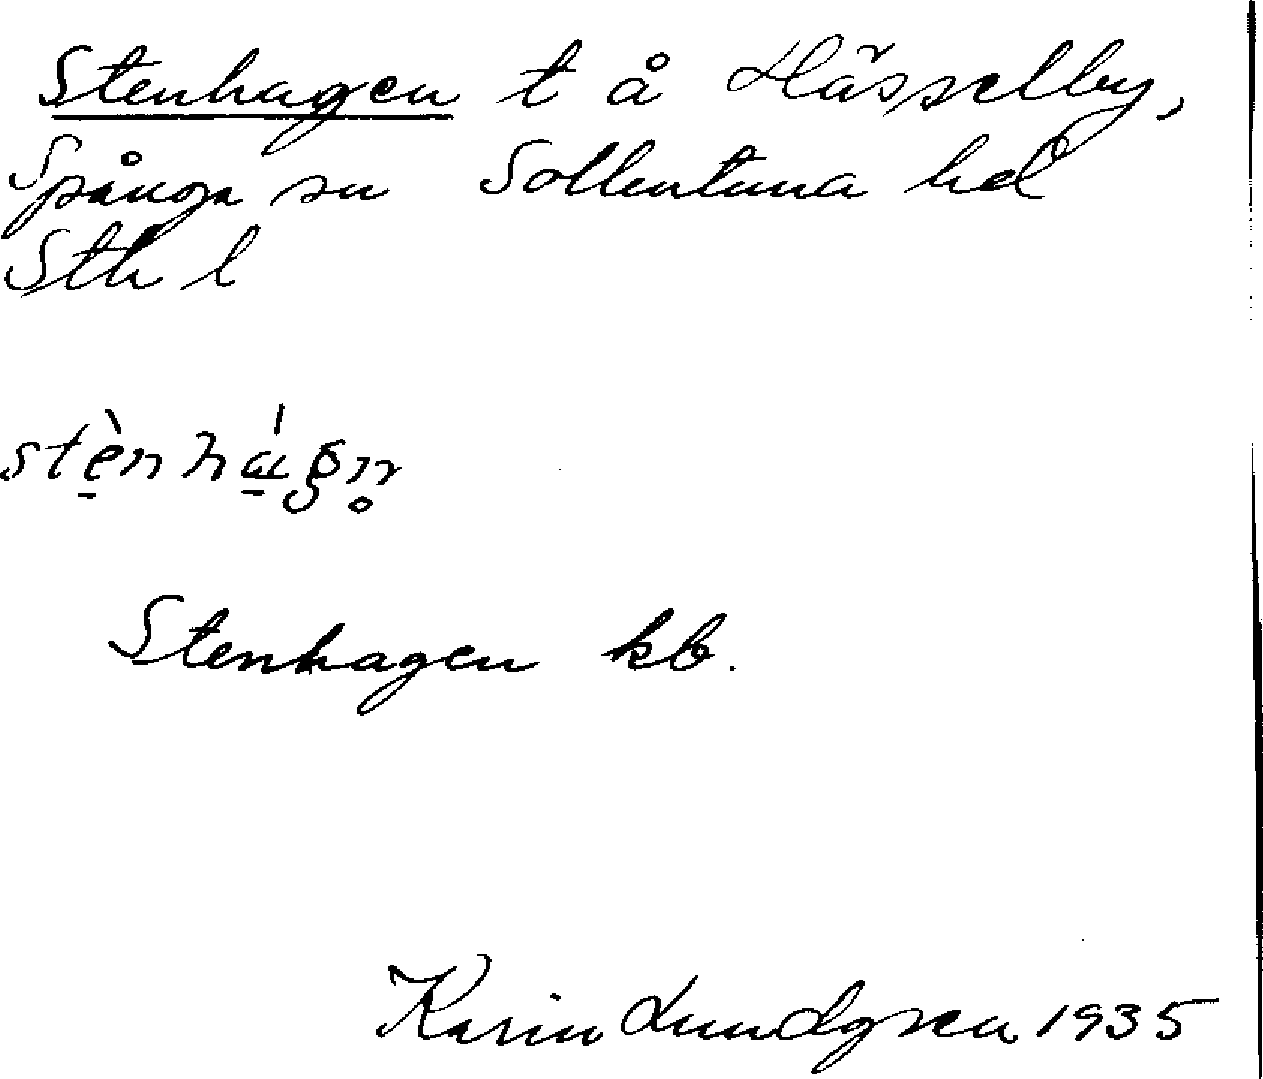 Stenhagen t å Hässelby,
Spånga sn Sollentuna hd
Sth l
stè̱nhá̱gn̥
Stenhagen kb.
Karin Lundgren 1935